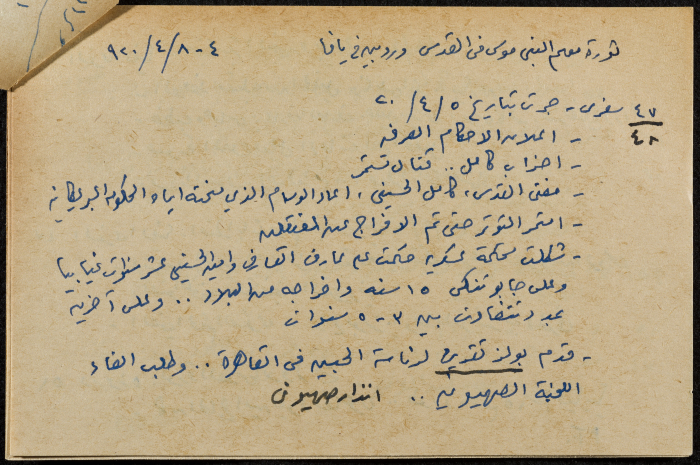 ثورة موسم النبي موسى في القدس وروبين في يافا ٤-٨/٤/٩٢٠
٤٧ سفري - جرت بتاريخ ٥/٤/٢٠
٤٨ - اعلان الاحكام العرفيه
- اضراب كامل .. قتال مستمر
- مفتي القدس، كامل الحسيني، اعاد الوسام الذي منحته اياه الحكومه البريطانيه
- استمر التوتر حتى تم الافراج عن المعتقلين
- شكلت محكمة عسكريه حكمت على عارف العارف وامين الحسيني عشر سنوات غيابيا
وعلى جابوتنسكي ١٥ سنه واخراجه من البلاد .. وعلى آخرين
بمدد تتفاوت بين ٣-٥ سنوات
- قدم بولز تقريره لرئاسة الجيش في القاهرة .. وطلب الغاء
اللجنة الصهيونيه .. انذار صهيوني